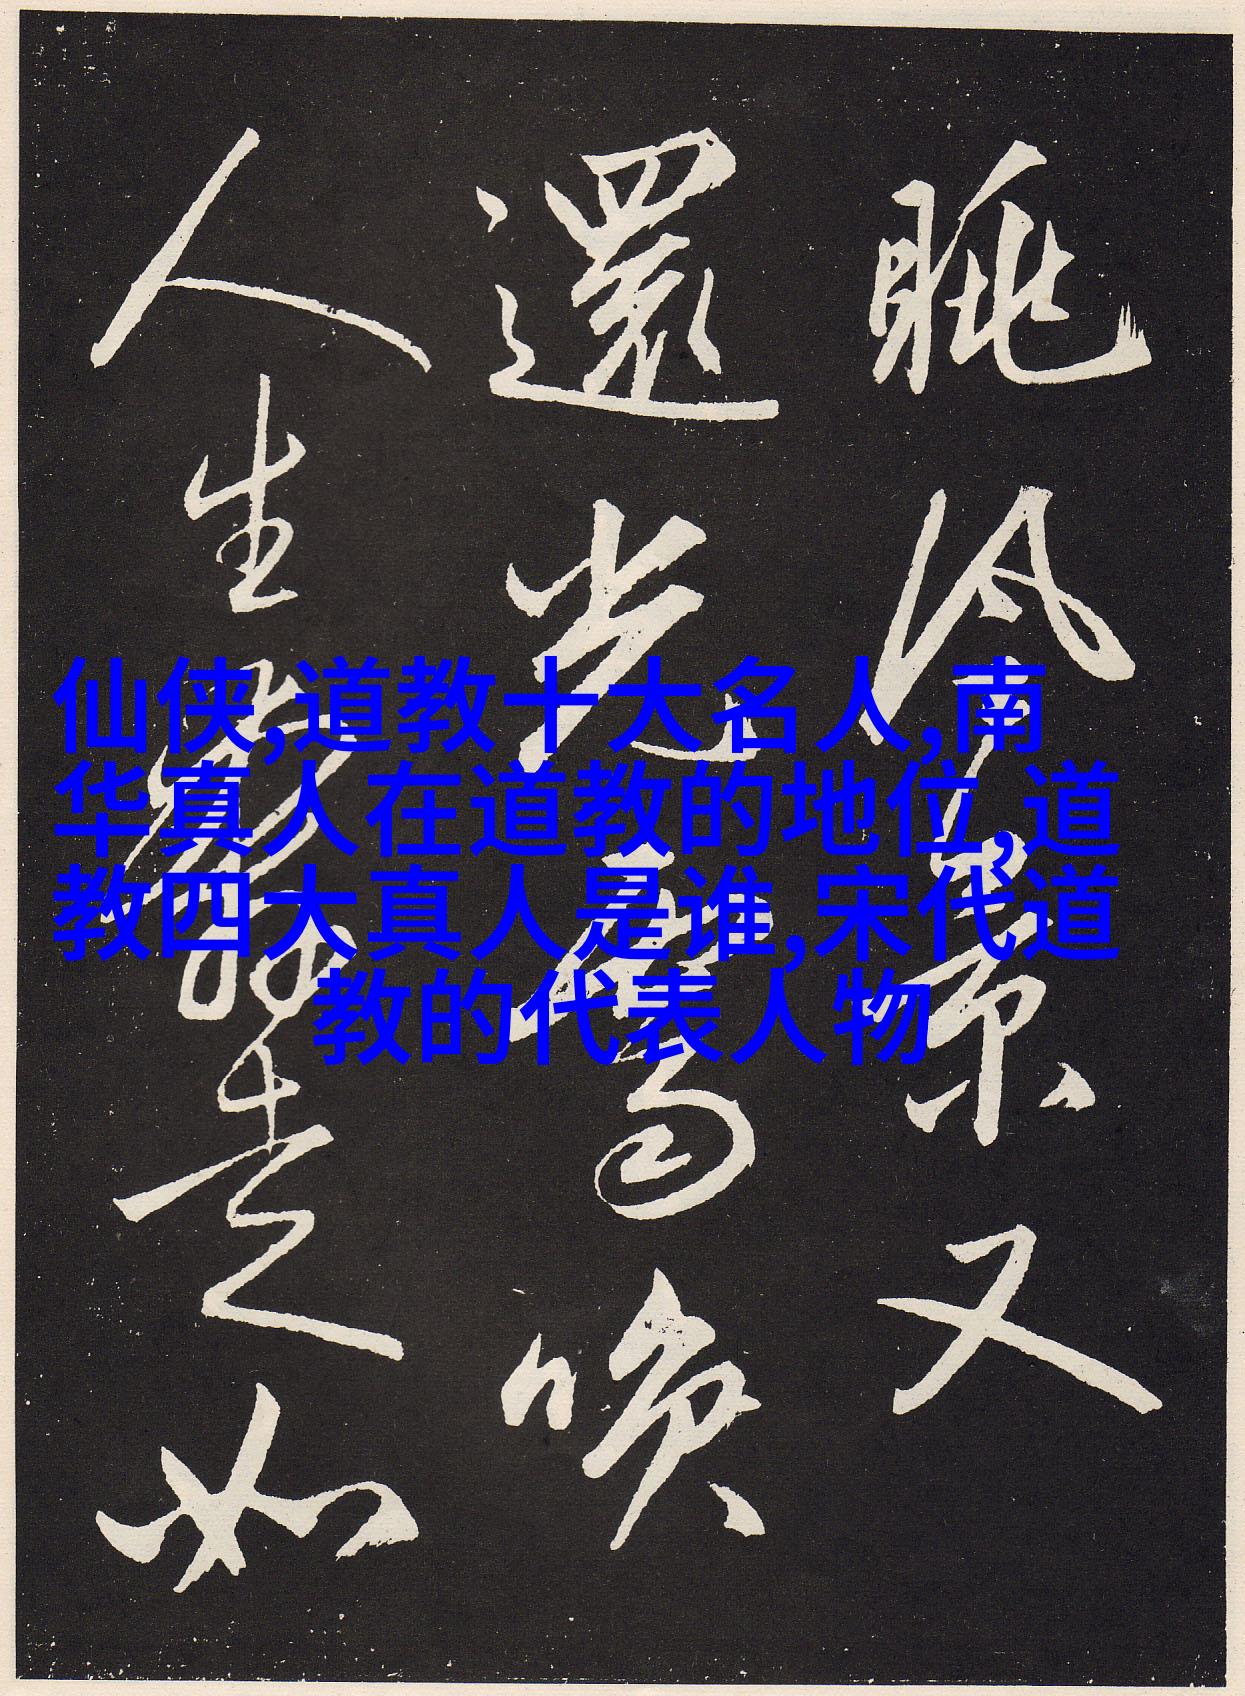 仙侠,道教十大名人,南
华真人在道教的地位,道
教四大真人是谁,宋代道
教的代表人物
眺景又
還光
人生如